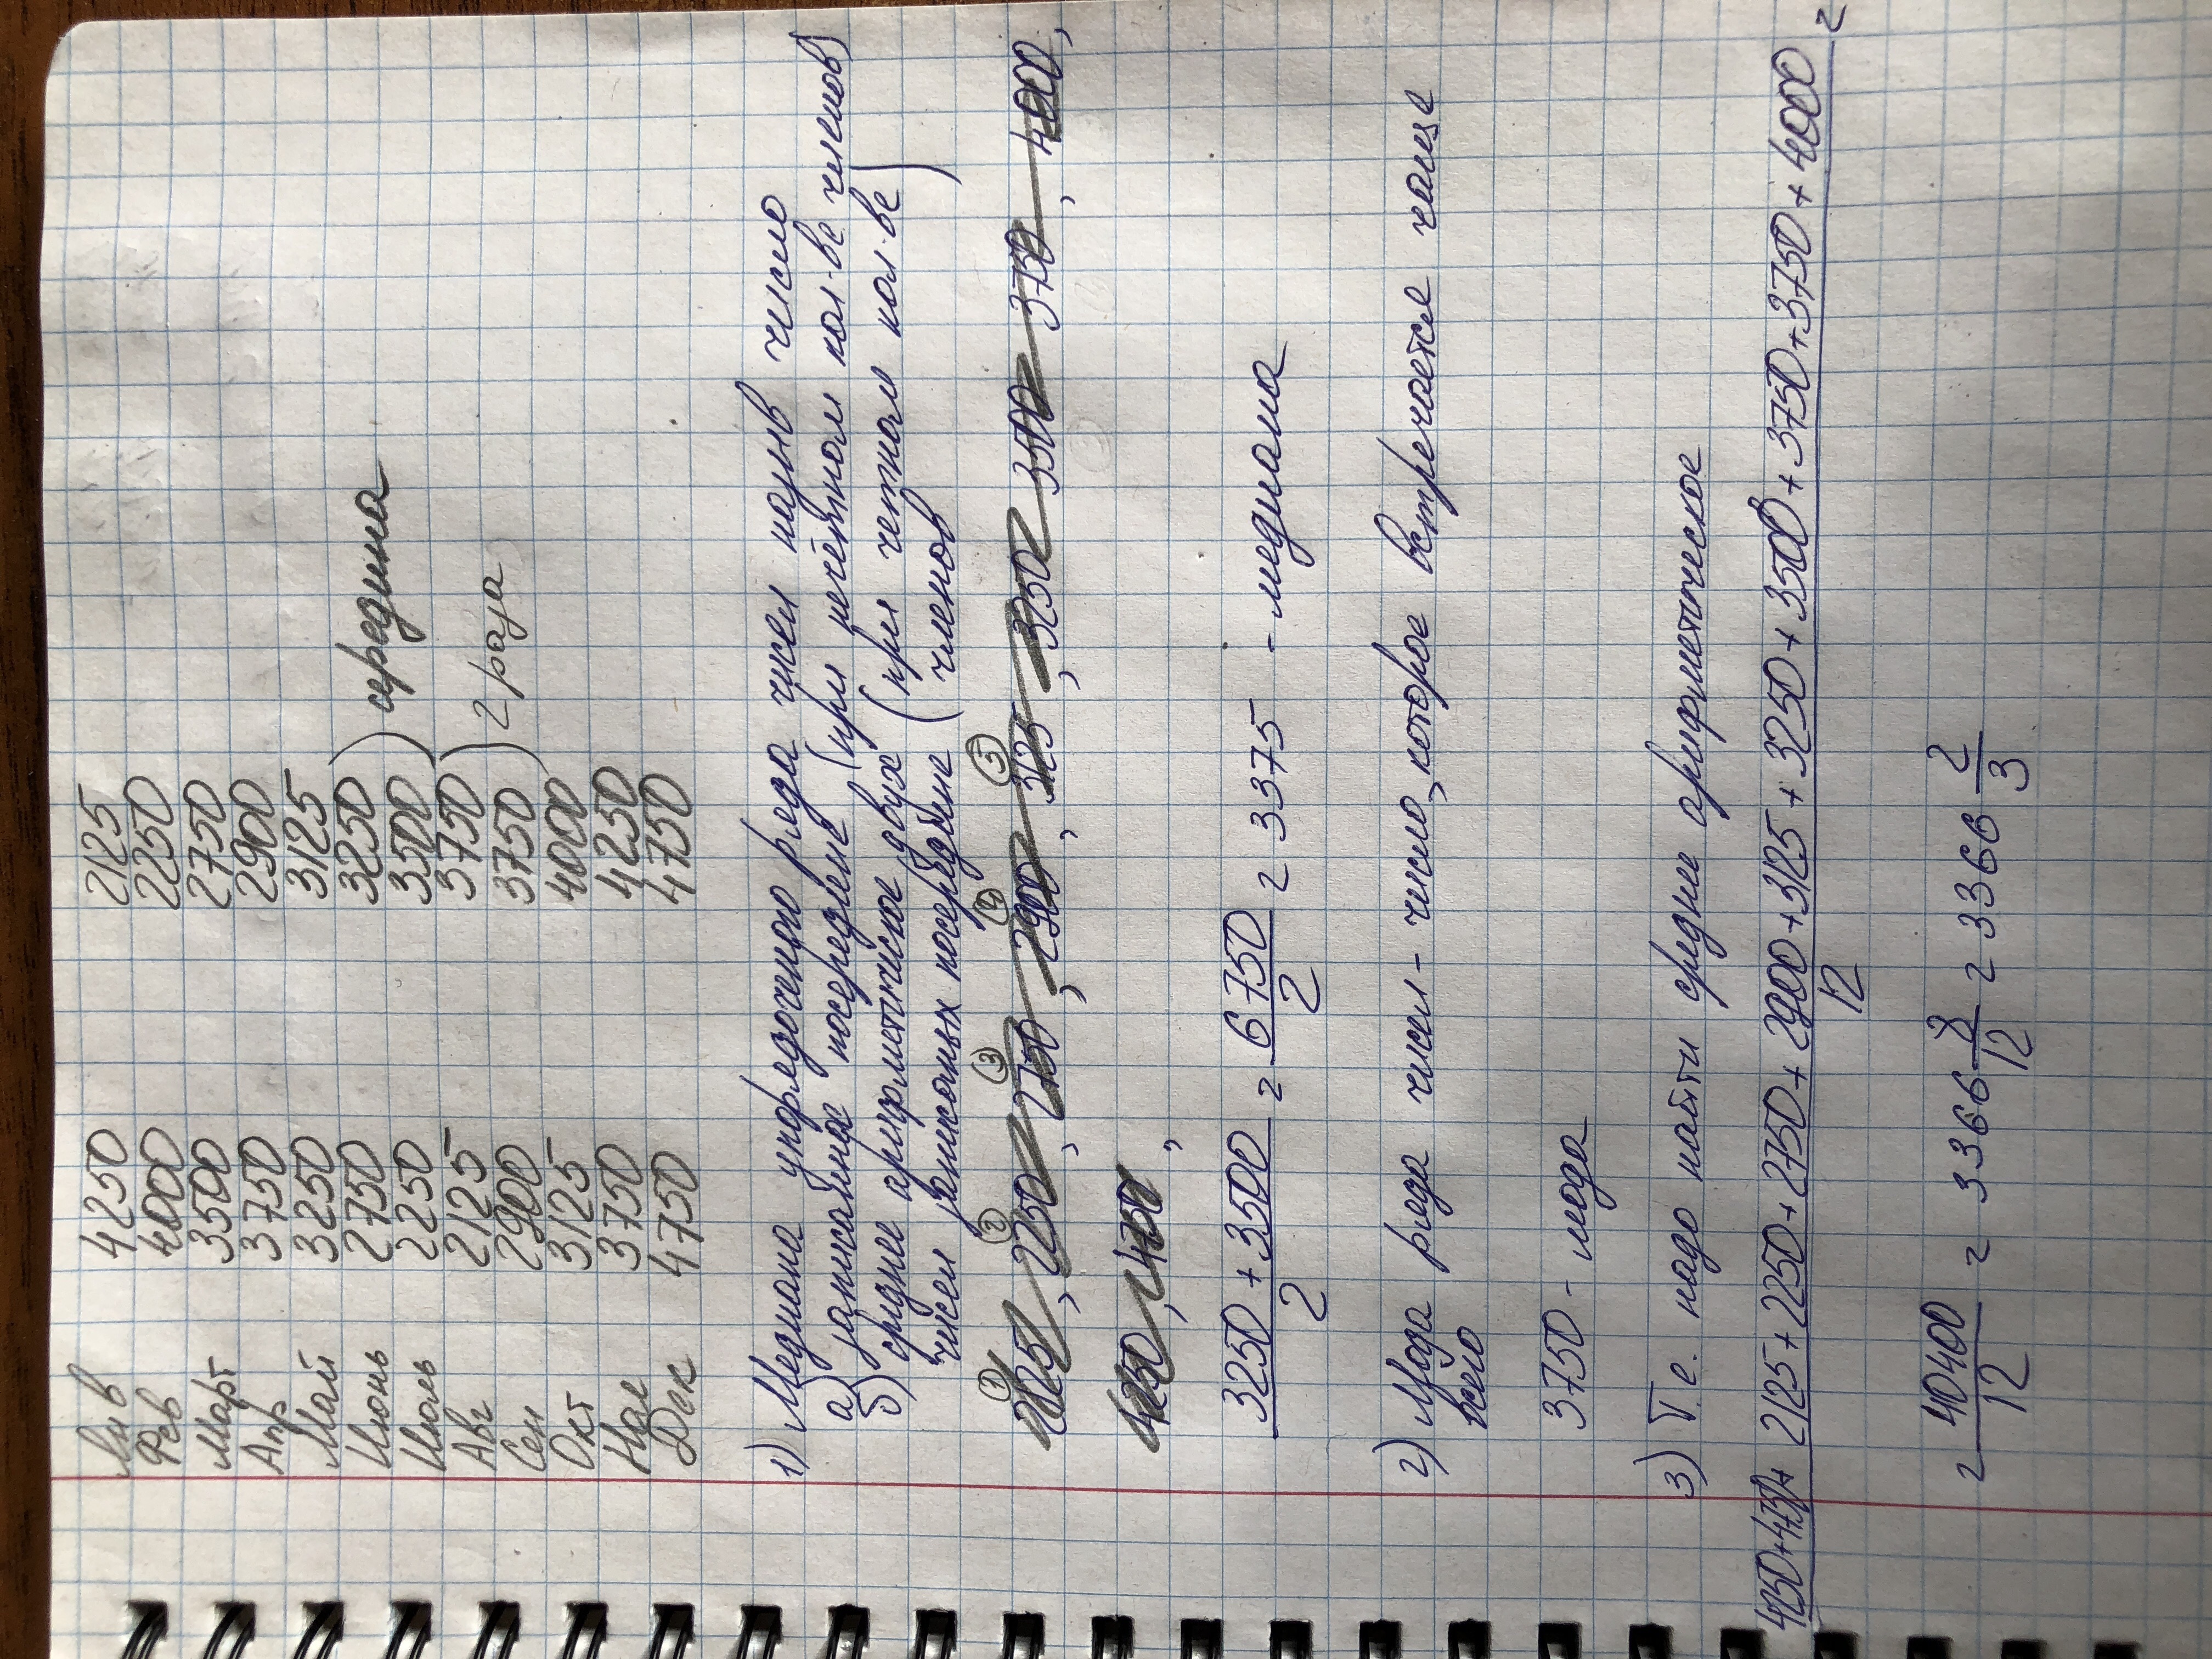 Янв 4250 2125
Фев 4000 2250
Март 3500 2750
Апр 3750 2900
Май 3250 3125
Июнь 2750 3250 ) середина
Июль 2250 3500
Авг 2125 3750 ) 2 раза
Сен 2900 3750
Окт 3125 4000
Ноя 3750 4250
Дек 4750 4750
1) Медиана упорядоченного ряда чисел назыв число
а) записанное посередине (при нечётном кол-ве членов)
б) среднее арифметическое двух (при четном кол-ве
чисел записанных посередине членов)
① ② 2250, ③ 2750, ④ 2900, ⑤ 3125, 3250, 3500 3750, 4000,
4250, 4750,
3250 + 3500 / 2 = 6750 / 2 = 3375 - медиана
2) Мода ряда чисел - число, которое встречается чаще
всего
3750 - мода
3) Т.е. надо найти среднее арифметическое
4250+4750+ 2125+2250+2750+2900+3125+3250+3500+3750+3750+4000 / 12 =
= 40400 / 12 = 3366 8/12 = 3366 2/3